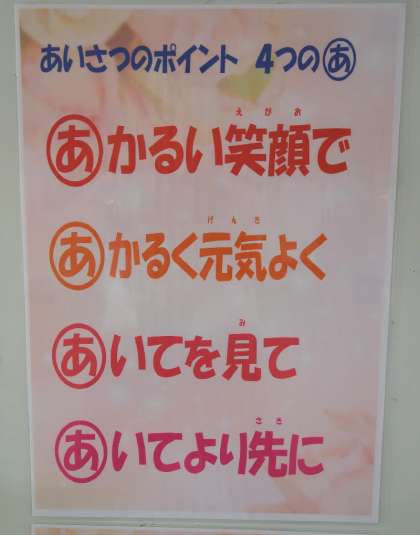 あいさつのポイント 4つのあ
えがお
あかるい笑顔で
げんき
あかるく元気よく
み
あいてを見て
さき
あいてより先に